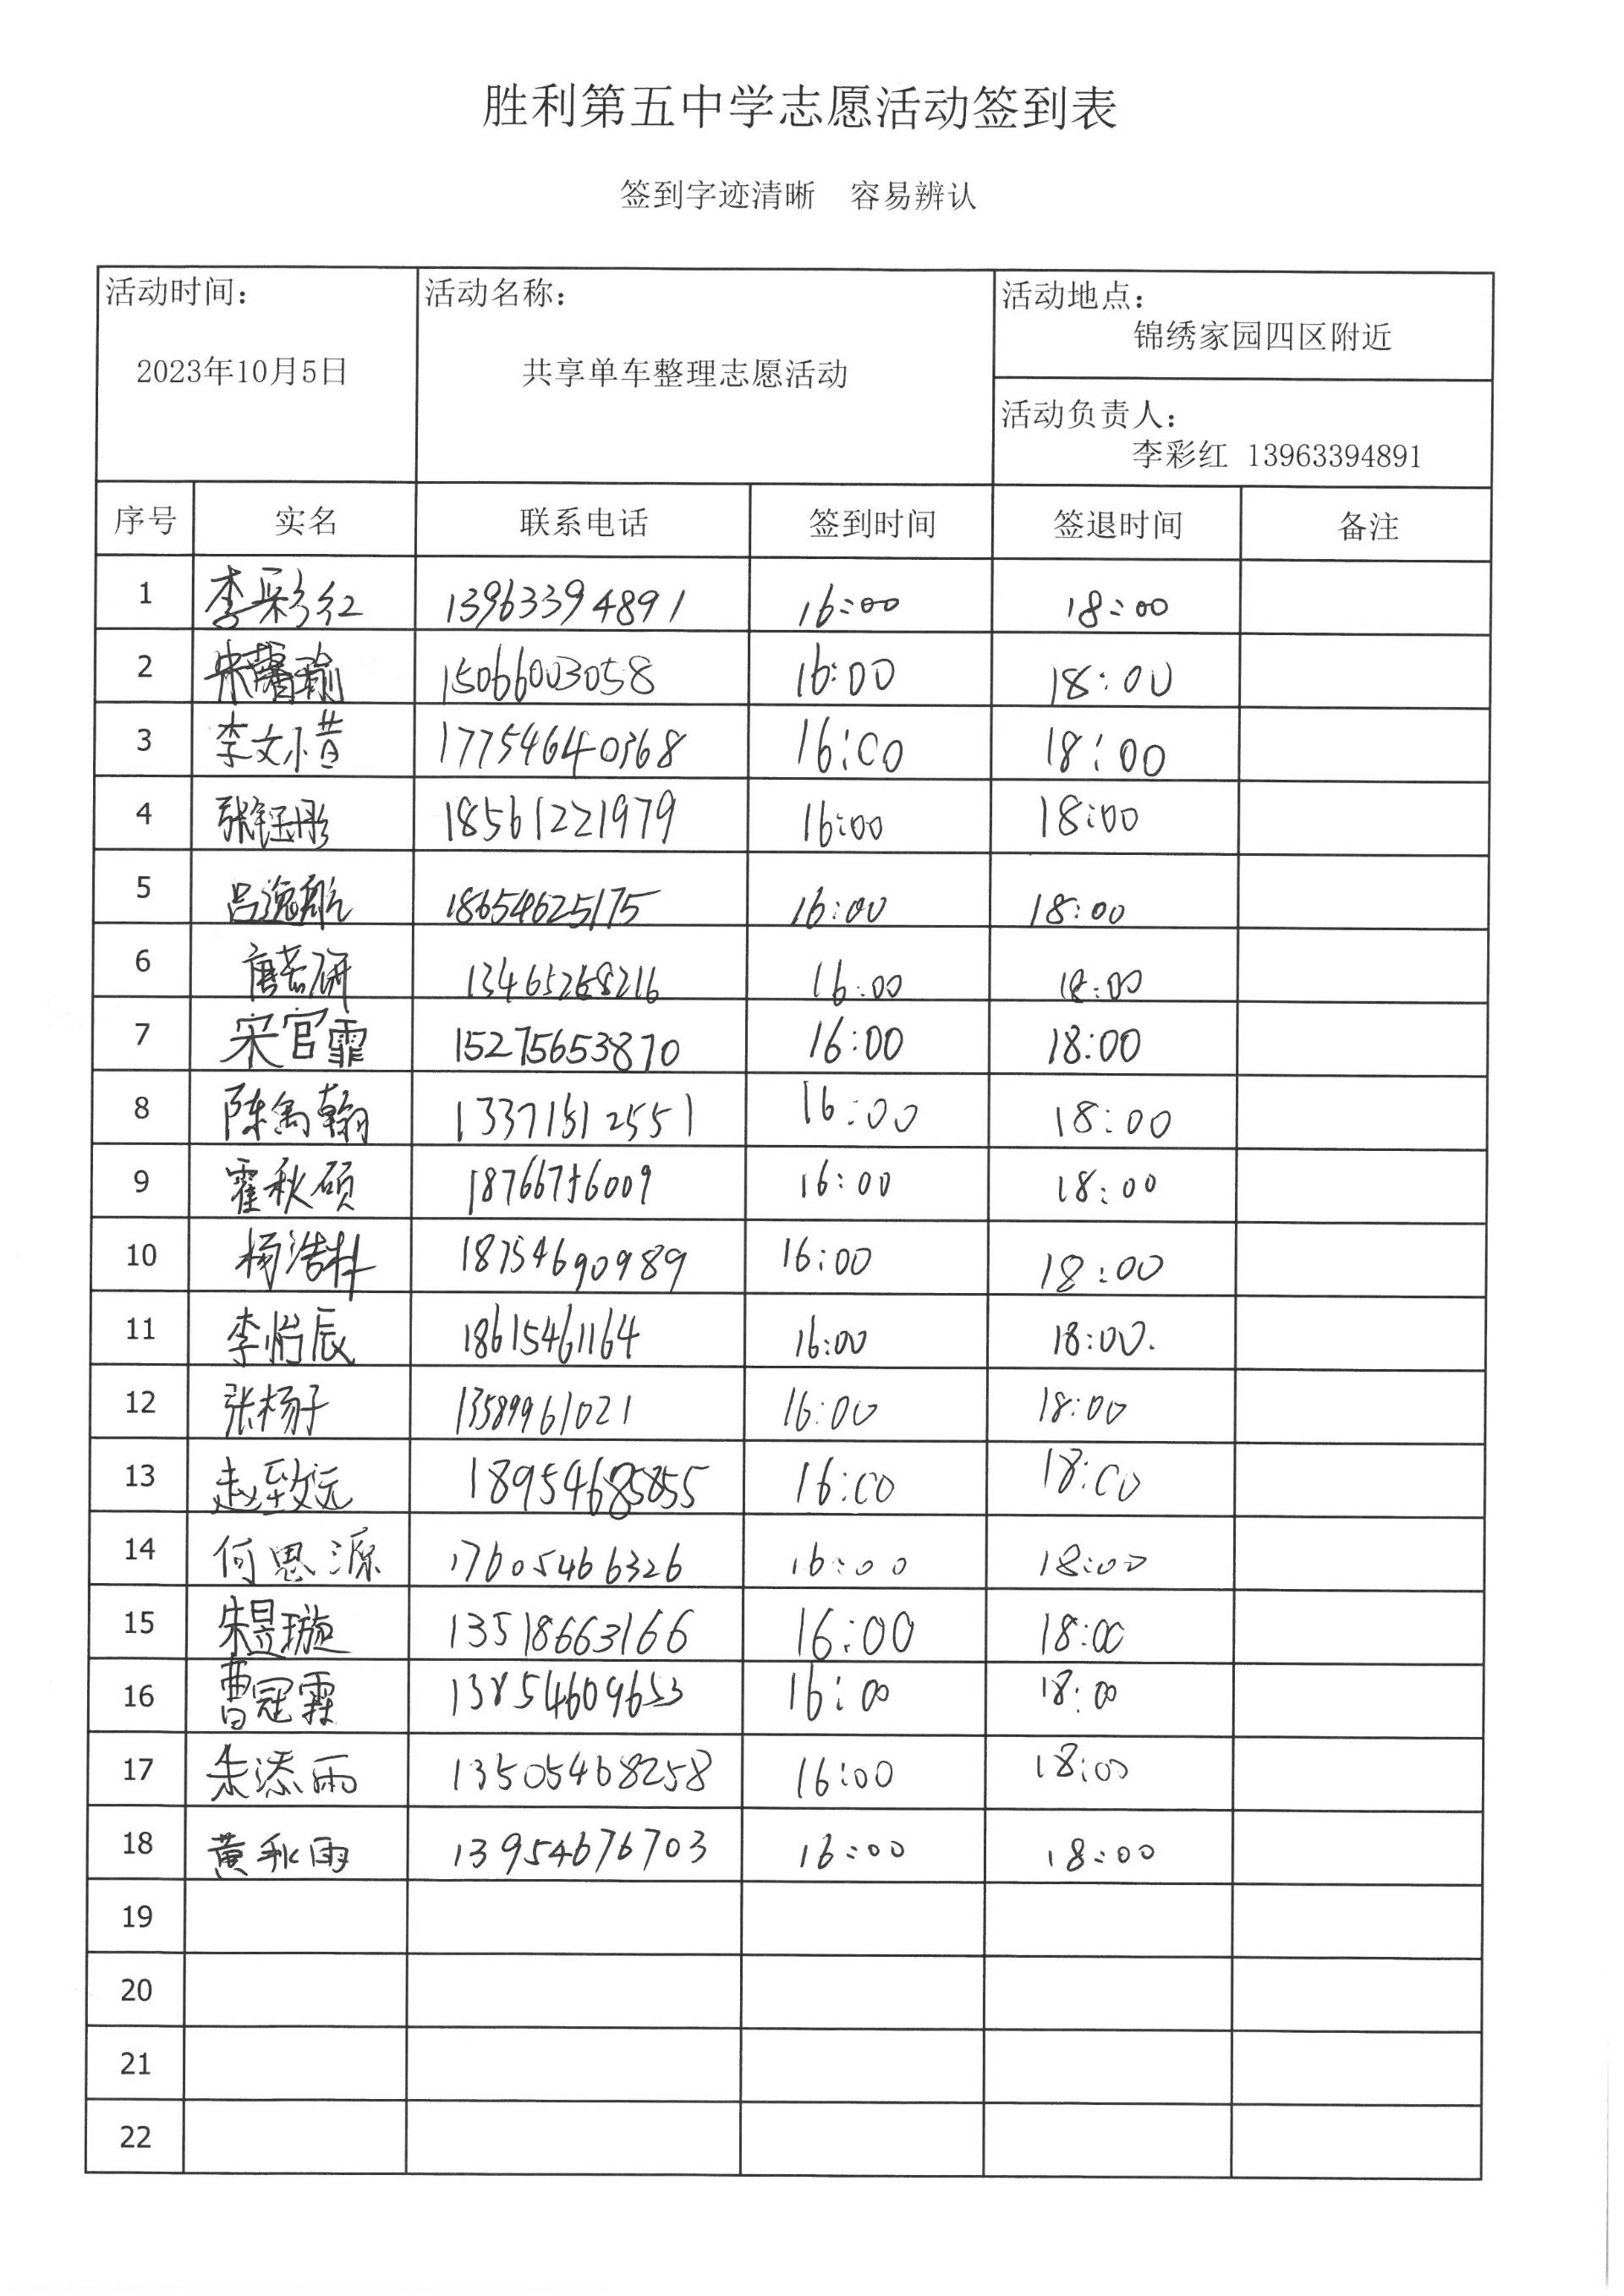 胜利第五中学志愿活动签到表
签到字迹清晰 容易辨认
活动时间： 活动名称： 活动地点：
锦绣家园四区附近
2023年10月5日 共享单车整理志愿活动
活动负责人：
李彩红 13963394891
序号 实名 联系电话 签到时间 签退时间 备注
1 李彩红 13963394891 16:00 18:00
2 宋馨瑜 15066003058 16:00 18:00
3 李文惜 17754640368 16:00 18:00
4 张钰彤 18561221979 16:00 18:00
5 吕逸航 18654625175 16:00 18:00
6 唐若妍 13465268216 16:00 18:00
7 宋官霏 15275653870 16:00 18:00
8 陈禹翰 13371512551 16:00 18:00
9 霍秋硕 18766756009 16:00 18:00
10 杨浩林 18754690989 16:00 18:00
11 李怡辰 18615461164 16:00 18:00.
12 张杨子 13589961021 16:00 18:00
13 赵致远 18954685855 16:00 18:00
14 何思源 17605466326 16:00 18:00
15 朱昱璇 13518663166 16:00 18:00
16 曹冠霖 13854609653 16:00 18:00
17 朱添雨 13505468258 16:00 18:00
18 黄秋雨 13954676703 16:00 18:00
19
20
21
22